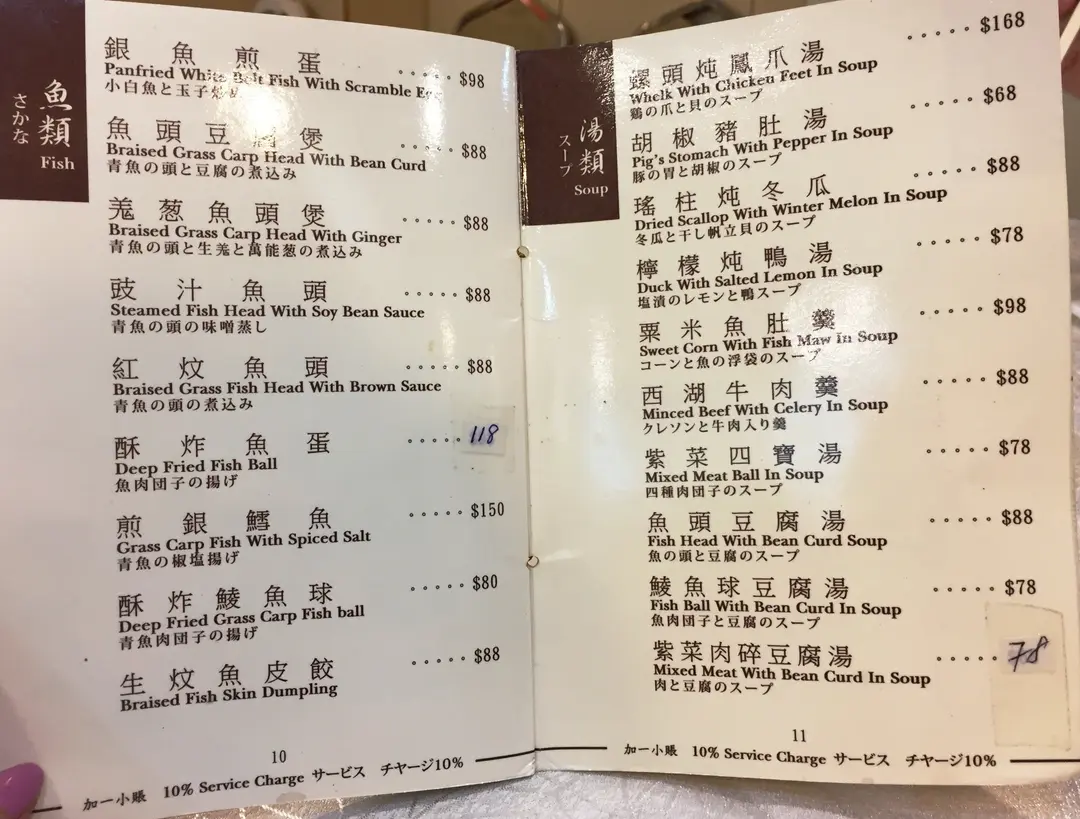 魚類
さかな
Fish
銀魚煎蛋 ..... $98
Panfried White Bait Fish With Scramble Egg
小白魚と玉子炒め
魚頭豆腐煲 ..... $88
Braised Grass Carp Head With Bean Curd
青魚の頭と豆腐の煮込み
羗葱魚頭煲 ..... $88
Braised Grass Carp Head With Ginger
青魚の頭と生羗と萬能葱の煮込み
豉汁魚頭 ..... $88
Steamed Fish Head With Soy Bean Sauce
青魚の頭の味噌蒸し
紅炆魚頭 ..... $88
Braised Grass Fish Head With Brown Sauce
青魚の頭の煮込み
酥炸魚蛋 ..... 118
Deep Fried Fish Ball
魚肉団子の揚げ
煎銀鱈魚 ..... $150
Grass Carp Fish With Spiced Salt
青魚の椒塩揚げ
酥炸鯪魚球 ..... $80
Deep Fried Grass Carp Fish ball
青魚肉団子の揚げ
生炆魚皮餃 ..... $88
Braised Fish Skin Dumpling
10
加一小賬 10% Service Charge サービス チヤージ10%
湯類
スープ
Soup
螺頭炖鳳爪湯 ..... $168
Whelk With Chicken Feet In Soup
鶏の爪と貝のスープ
胡椒豬肚湯 ..... $68
Pig's Stomach With Pepper In Soup
豚の胃と胡椒のスープ
瑤柱炖冬瓜 ..... $88
Dried Scallop With Winter Melon In Soup
冬瓜と干し帆立貝のスープ
檸檬炖鴨湯 ..... $78
Duck With Salted Lemon In Soup
塩漬のレモンと鴨スープ
粟米魚肚羹 ..... $98
Sweet Corn With Fish Maw In Soup
コーンと魚の浮袋のスープ
西湖牛肉羹 ..... $88
Minced Beef With Celery In Soup
クレソンと牛肉入り羹
紫菜四寶湯 ..... $78
Mixed Meat Ball In Soup
四種肉団子のスープ
魚頭豆腐湯 ..... $88
Fish Head With Bean Curd Soup
魚の頭と豆腐のスープ
鯪魚球豆腐湯 ..... $78
Fish Ball With Bean Curd In Soup
魚肉団子と豆腐のスープ
紫菜肉碎豆腐湯 ..... 78
Mixed Meat With Bean Curd In Soup
肉と豆腐のスープ
11
加一小賬 10% Service Charge サービス チヤージ10%